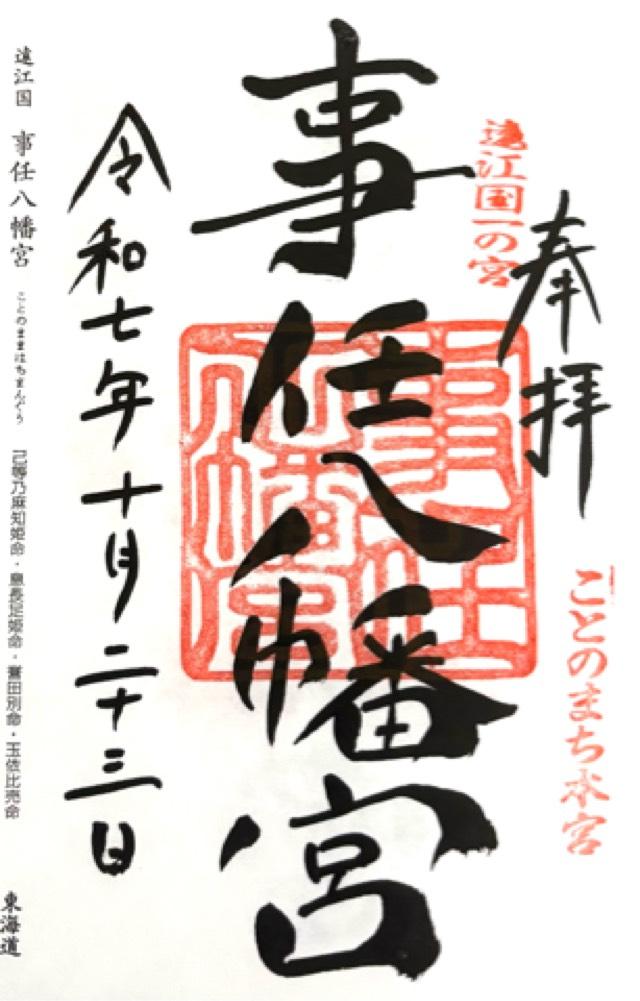 奉拝
ことのまち本宮
遠江国一の宮
事任八幡宮
事任
八幡宮
令和七年十月二十三日
遠江国 事任八幡宮 ことのままはちまんぐう 己等乃麻知姫命・息長足姫命・誉田別命・玉依比売命 東海道